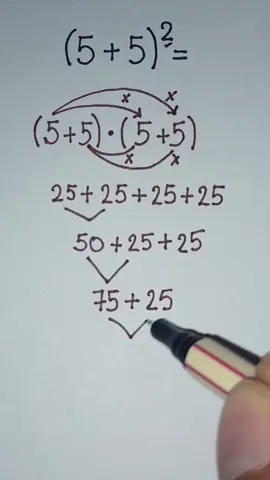 (5+5)²=
(5+5)·(5+5)
x x x x
25+25+25+25
50+25+25
75+25